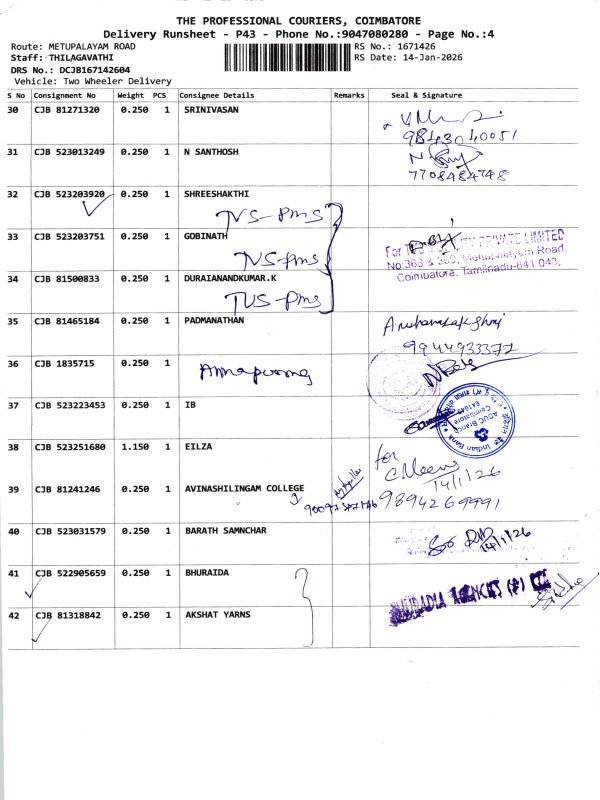 THE PROFESSIONAL COURIERS, COIMBATORE
Delivery Runsheet - P43 - Phone No.:9047080280 - Page No.:4
Route: METUPALAYAM ROAD
RS No.: 1671426
Staff: THILAGAVATHI
RS Date: 14-Jan-2026
DRS No.: DCJB167142604
Vehicle: Two Wheeler Delivery
S No Consignment No Weight PCS Consignee Details Remarks Seal & Signature
30 CJB 81271320 0.250 1 SRINIVASAN
9843040051
31 CJB 523013249 0.250 1 N SANTHOSH
7708484748
32 CJB 523203920 0.250 1 SHREESHAKTHI
TVS-Pms
33 CJB 523203751 0.250 1 GOBINATH
TVS-Pms
For PRIVATE LIMITED
No.368 & 369, Mettupalayam Road,
Coimbatore, Tamilnadu-641 043.
34 CJB 81500833 0.250 1 DURAIANANDKUMAR.K
TVS-Pms
35 CJB 81465184 0.250 1 PADMANATHAN
9944933377
36 CJB 1835715 0.250 1
Annapoorna
37 CJB 523223453 0.250 1 IB
Indian Bank
AGUC Branch
Coimbatore
641043
38 CJB 523251680 1.150 1 EILZA
for
14/1/26
39 CJB 81241246 0.250 1 AVINASHILINGAM COLLEGE
9894269991
40 CJB 523031579 0.250 1 BARATH SAMNCHAR
14/1/26
41 CJB 522905659 0.250 1 BHURAIDA
AGENCIES (P) LTD
42 CJB 81318842 0.250 1 AKSHAT YARNS